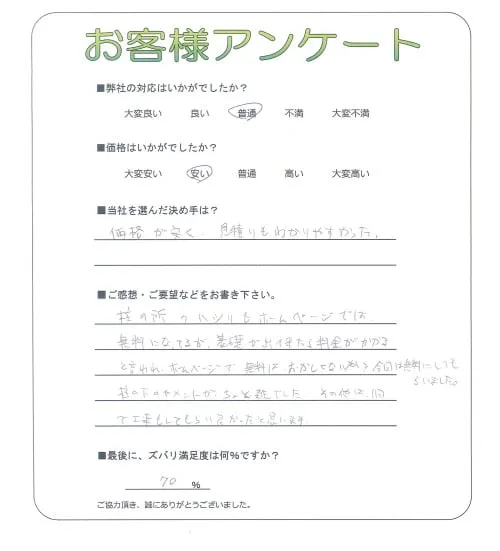 お客様アンケート
■弊社の対応はいかがでしたか？
大変良い 良い 普通 不満 大変不満
■価格はいかがでしたか？
大変安い 安い 普通 高い 大変高い
■当社を選んだ決め手は？
価格が安く、見積りもわかりやすかった。
■ご感想・ご要望などをお書き下さい。
柱の所のハツリもホームページでは
無料になってるが、基礎が出て来たら料金がかかる
と言われ、ホームページで無料はおかしくない 今回は無料にしても
らいました。
柱の下のセメントがちょっと雑でした その他は
で工事もしてもらい良かったと思います
■最後に、ズバリ満足度は何％ですか？
70 ％
ご協力頂き、誠にありがとうございました。